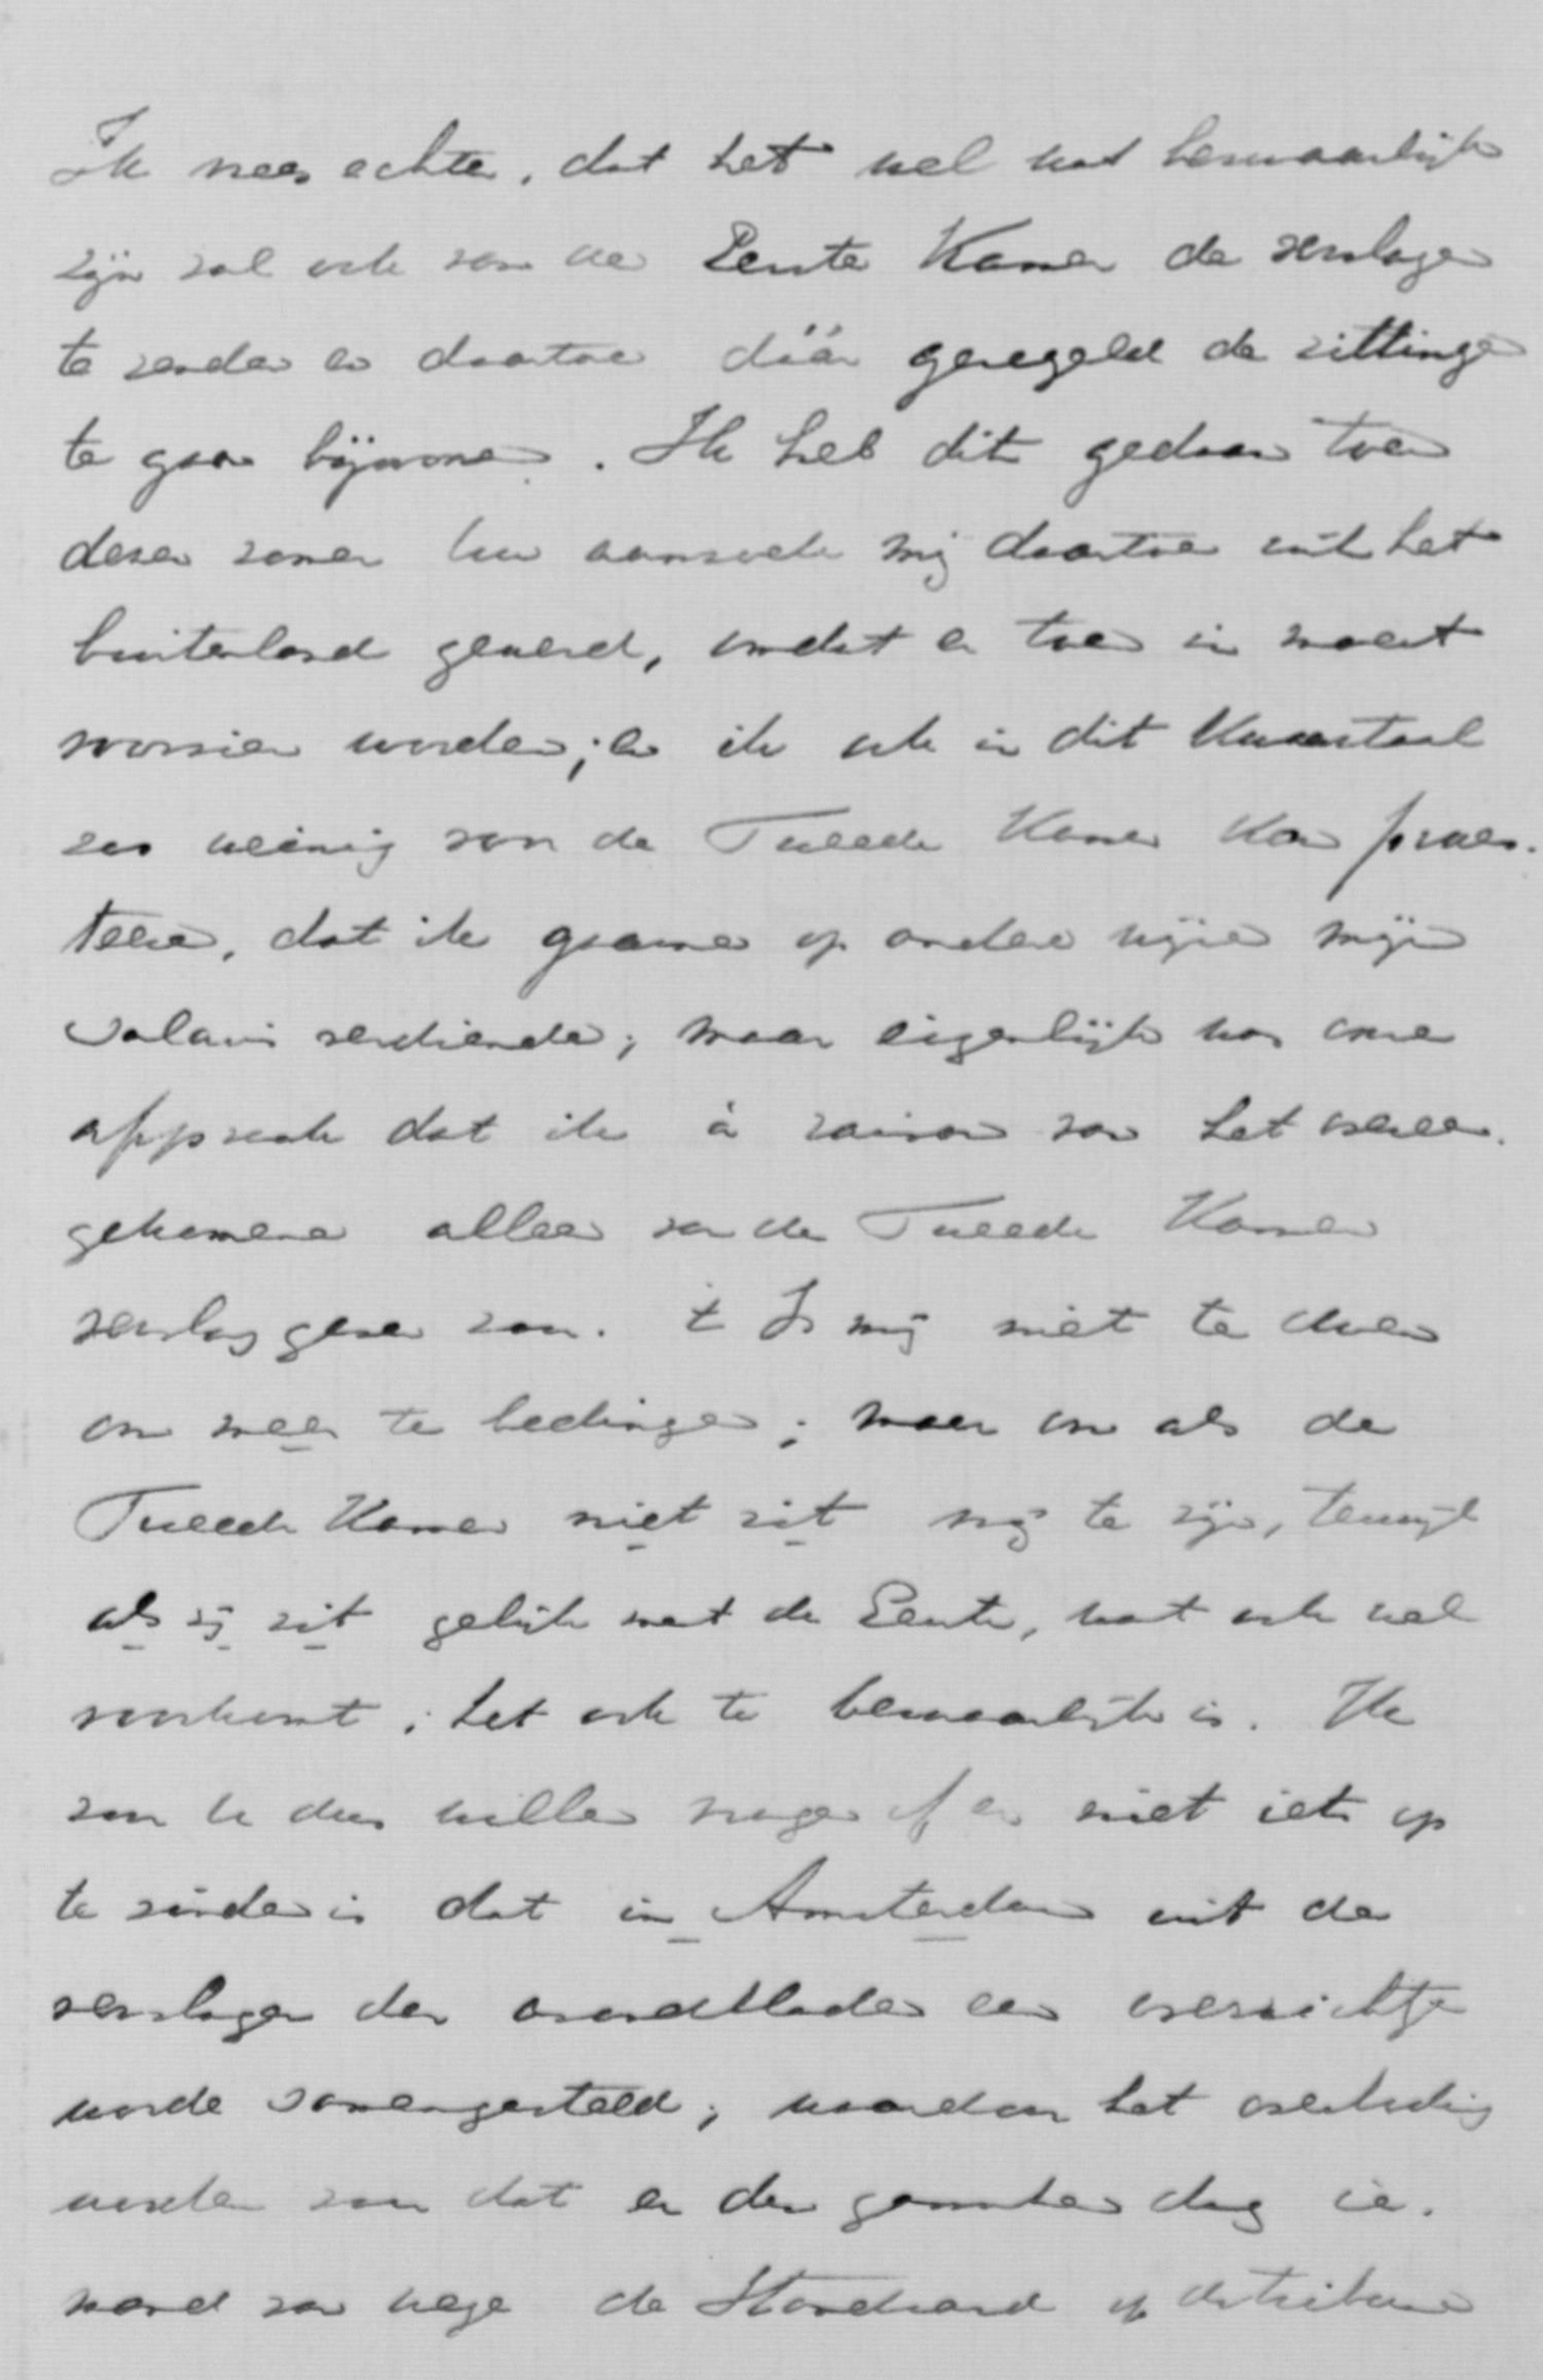 Ik vrees echter, dat het wel wat bezwaarlijk
zijn zal ook van de Eerste Kamer de verslagen
te zenden en daartoe dáár geregeld de zittingen
te gaan bijwonen. Ik heb dit gedaan toen
dezen zomer uw aanzoek mij daartoe uit het
buitenland gewerd, omdat er toen in moest
voorzien worden; en ik ook in dit kwartaal
zoo weinig van de Tweede Kamer kon praes-
teeren, dat ik gaarne op andere wijze mijn
salaris verdiende; maar eigenlijk was onze
afspraak dat ik à raison van het overeen-
gekomene alleen van de Tweede Kamer
verslag geven zou. 't Is mij niet te doen
om meer te bedingen; maar om als de
Tweede Kamer niet zit vrij te zijn, terwijl
als zij zit gelijk met de Eerste, wat ook wel
voorkomt, het ook te bezwaarlijk is. Ik
zou u dus willen vragen of er niet iets op
te vinden is dat in Amsterdam uit de
verslagen der avondbladen een overzichtje
worde samengesteld; waardoor het overbodig
worden zou dat er den ganschen dag ie-
mand van wege de Standaard op de tribune